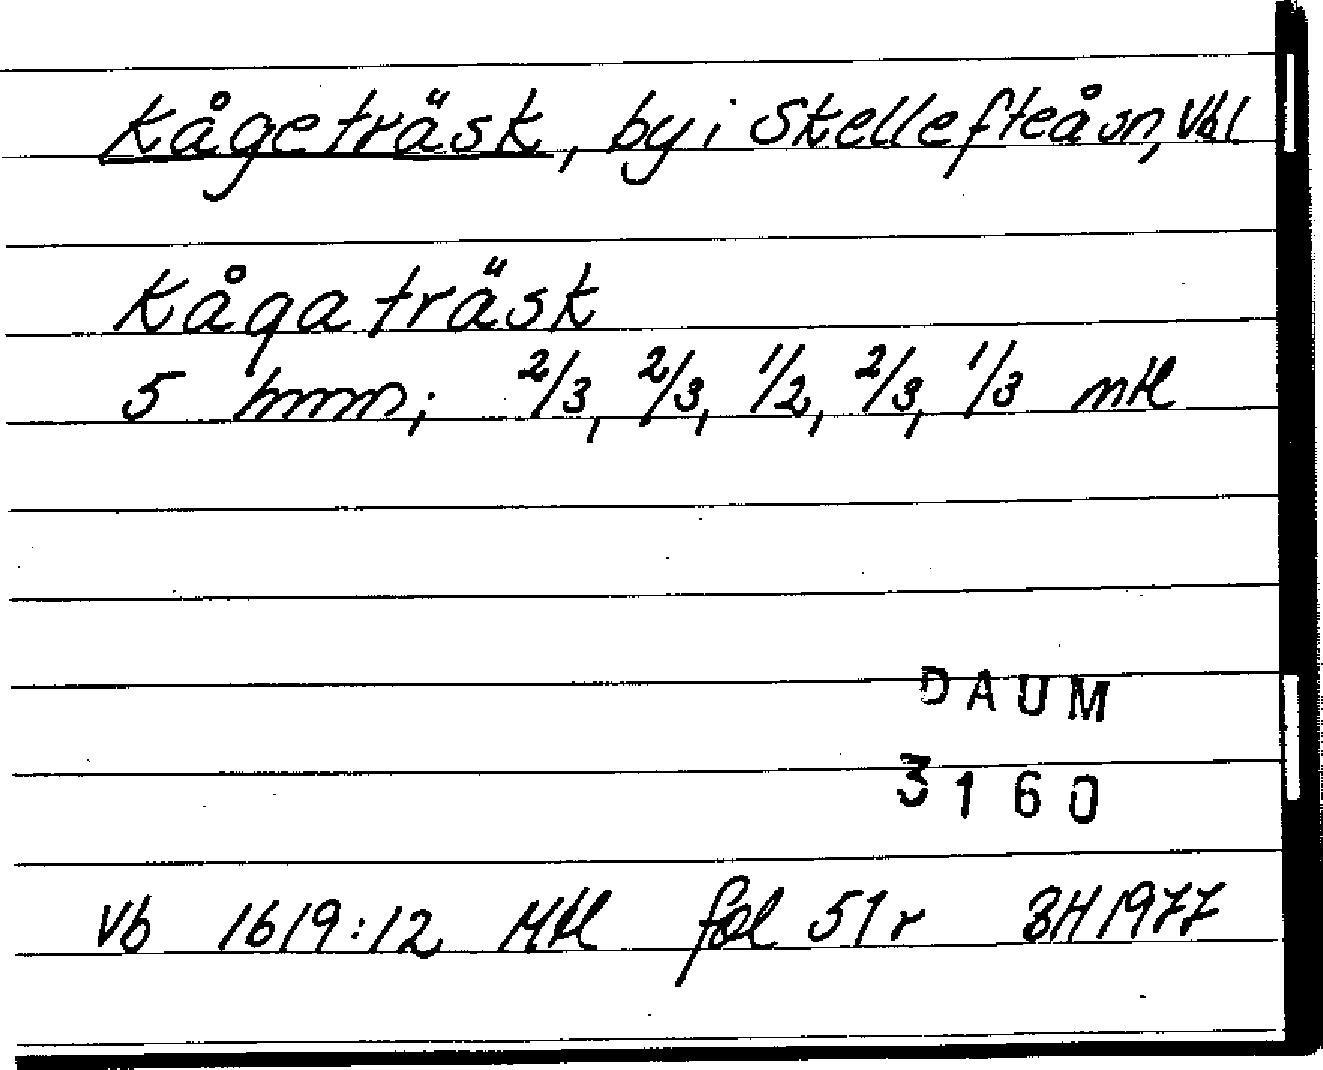 Kågeträsk, by i Skellefteå sn, Vbl
Kågaträsk
5 hmn; 2/3, 2/3, 1/2, 2/3, 1/3 mtl
DAUM
3160
Vb 1619:12 Mtl fol 51r BH 1977